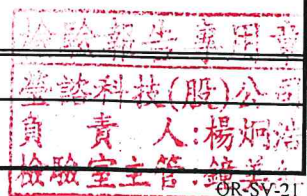 檢驗報告專用章
瑩諮科技(股)公司
負責人:楊炯
檢驗室主管:鐘
OR-SV-21